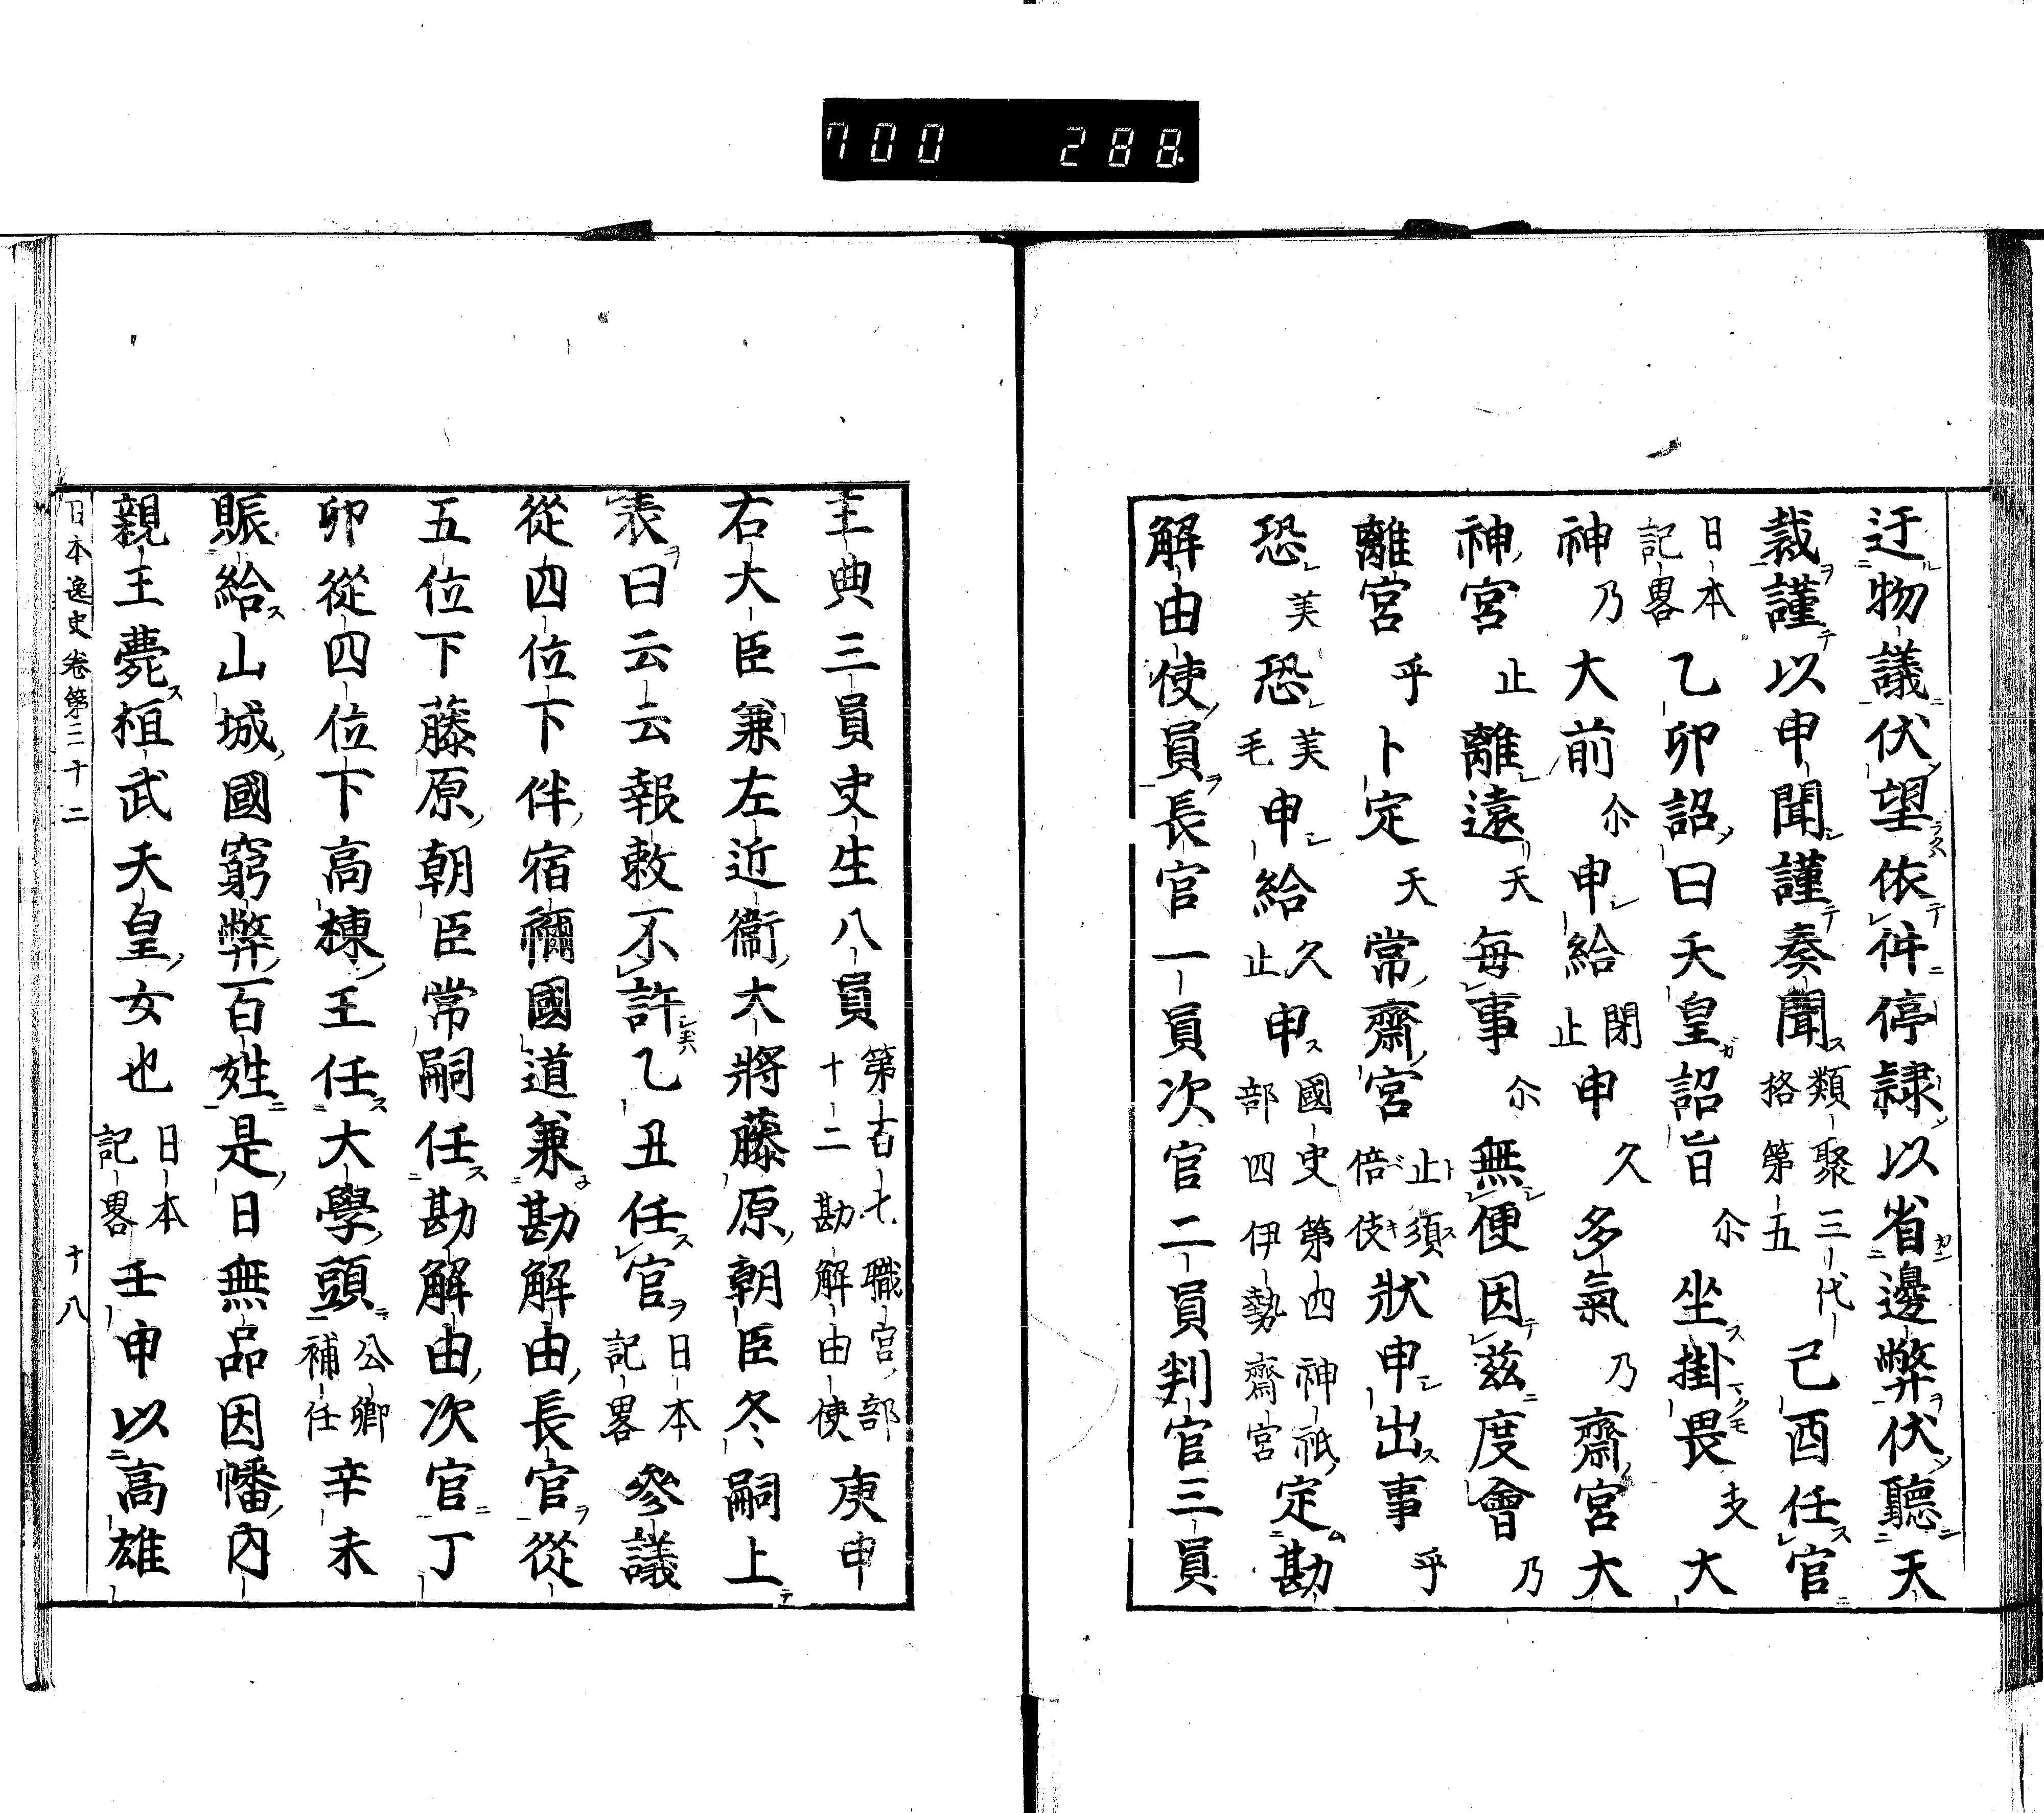 700 288
迂物議伏望依件停隷以省邊弊伏聽天
裁謹以申聞謹奏聞類聚三代格第五己酉任官
日本記畧乙卯詔曰天皇詔旨尒坐掛畏支大
神乃大前尒申給閇止申久多氣乃齋宮大
神宮止離遠天每事尒無便因茲度會乃
離宮乎卜定天常齋宮止須倍伎狀申出事乎
恐美恐美毛申給久止申國史第四神祇部四伊勢齋宮定勘
解由使員長官一員次官二員判官三員
主典三員史生八員第百七職官部十二勘解由使庚申
右大臣兼左近衞大將藤原朝臣冬嗣上
表曰云云報敕不許乙丑任官日本記畧參議
從四位下伴宿禰國道兼勘解由長官從
五位下藤原朝臣常嗣任勘解由次官丁
卯從四位下高棟王任大學頭公卿補任辛未
賑給山城國窮弊百姓是日無品因幡內
親王薨桓武天皇女也日本記畧壬申以高雄
日本逸史卷第三十二 十八